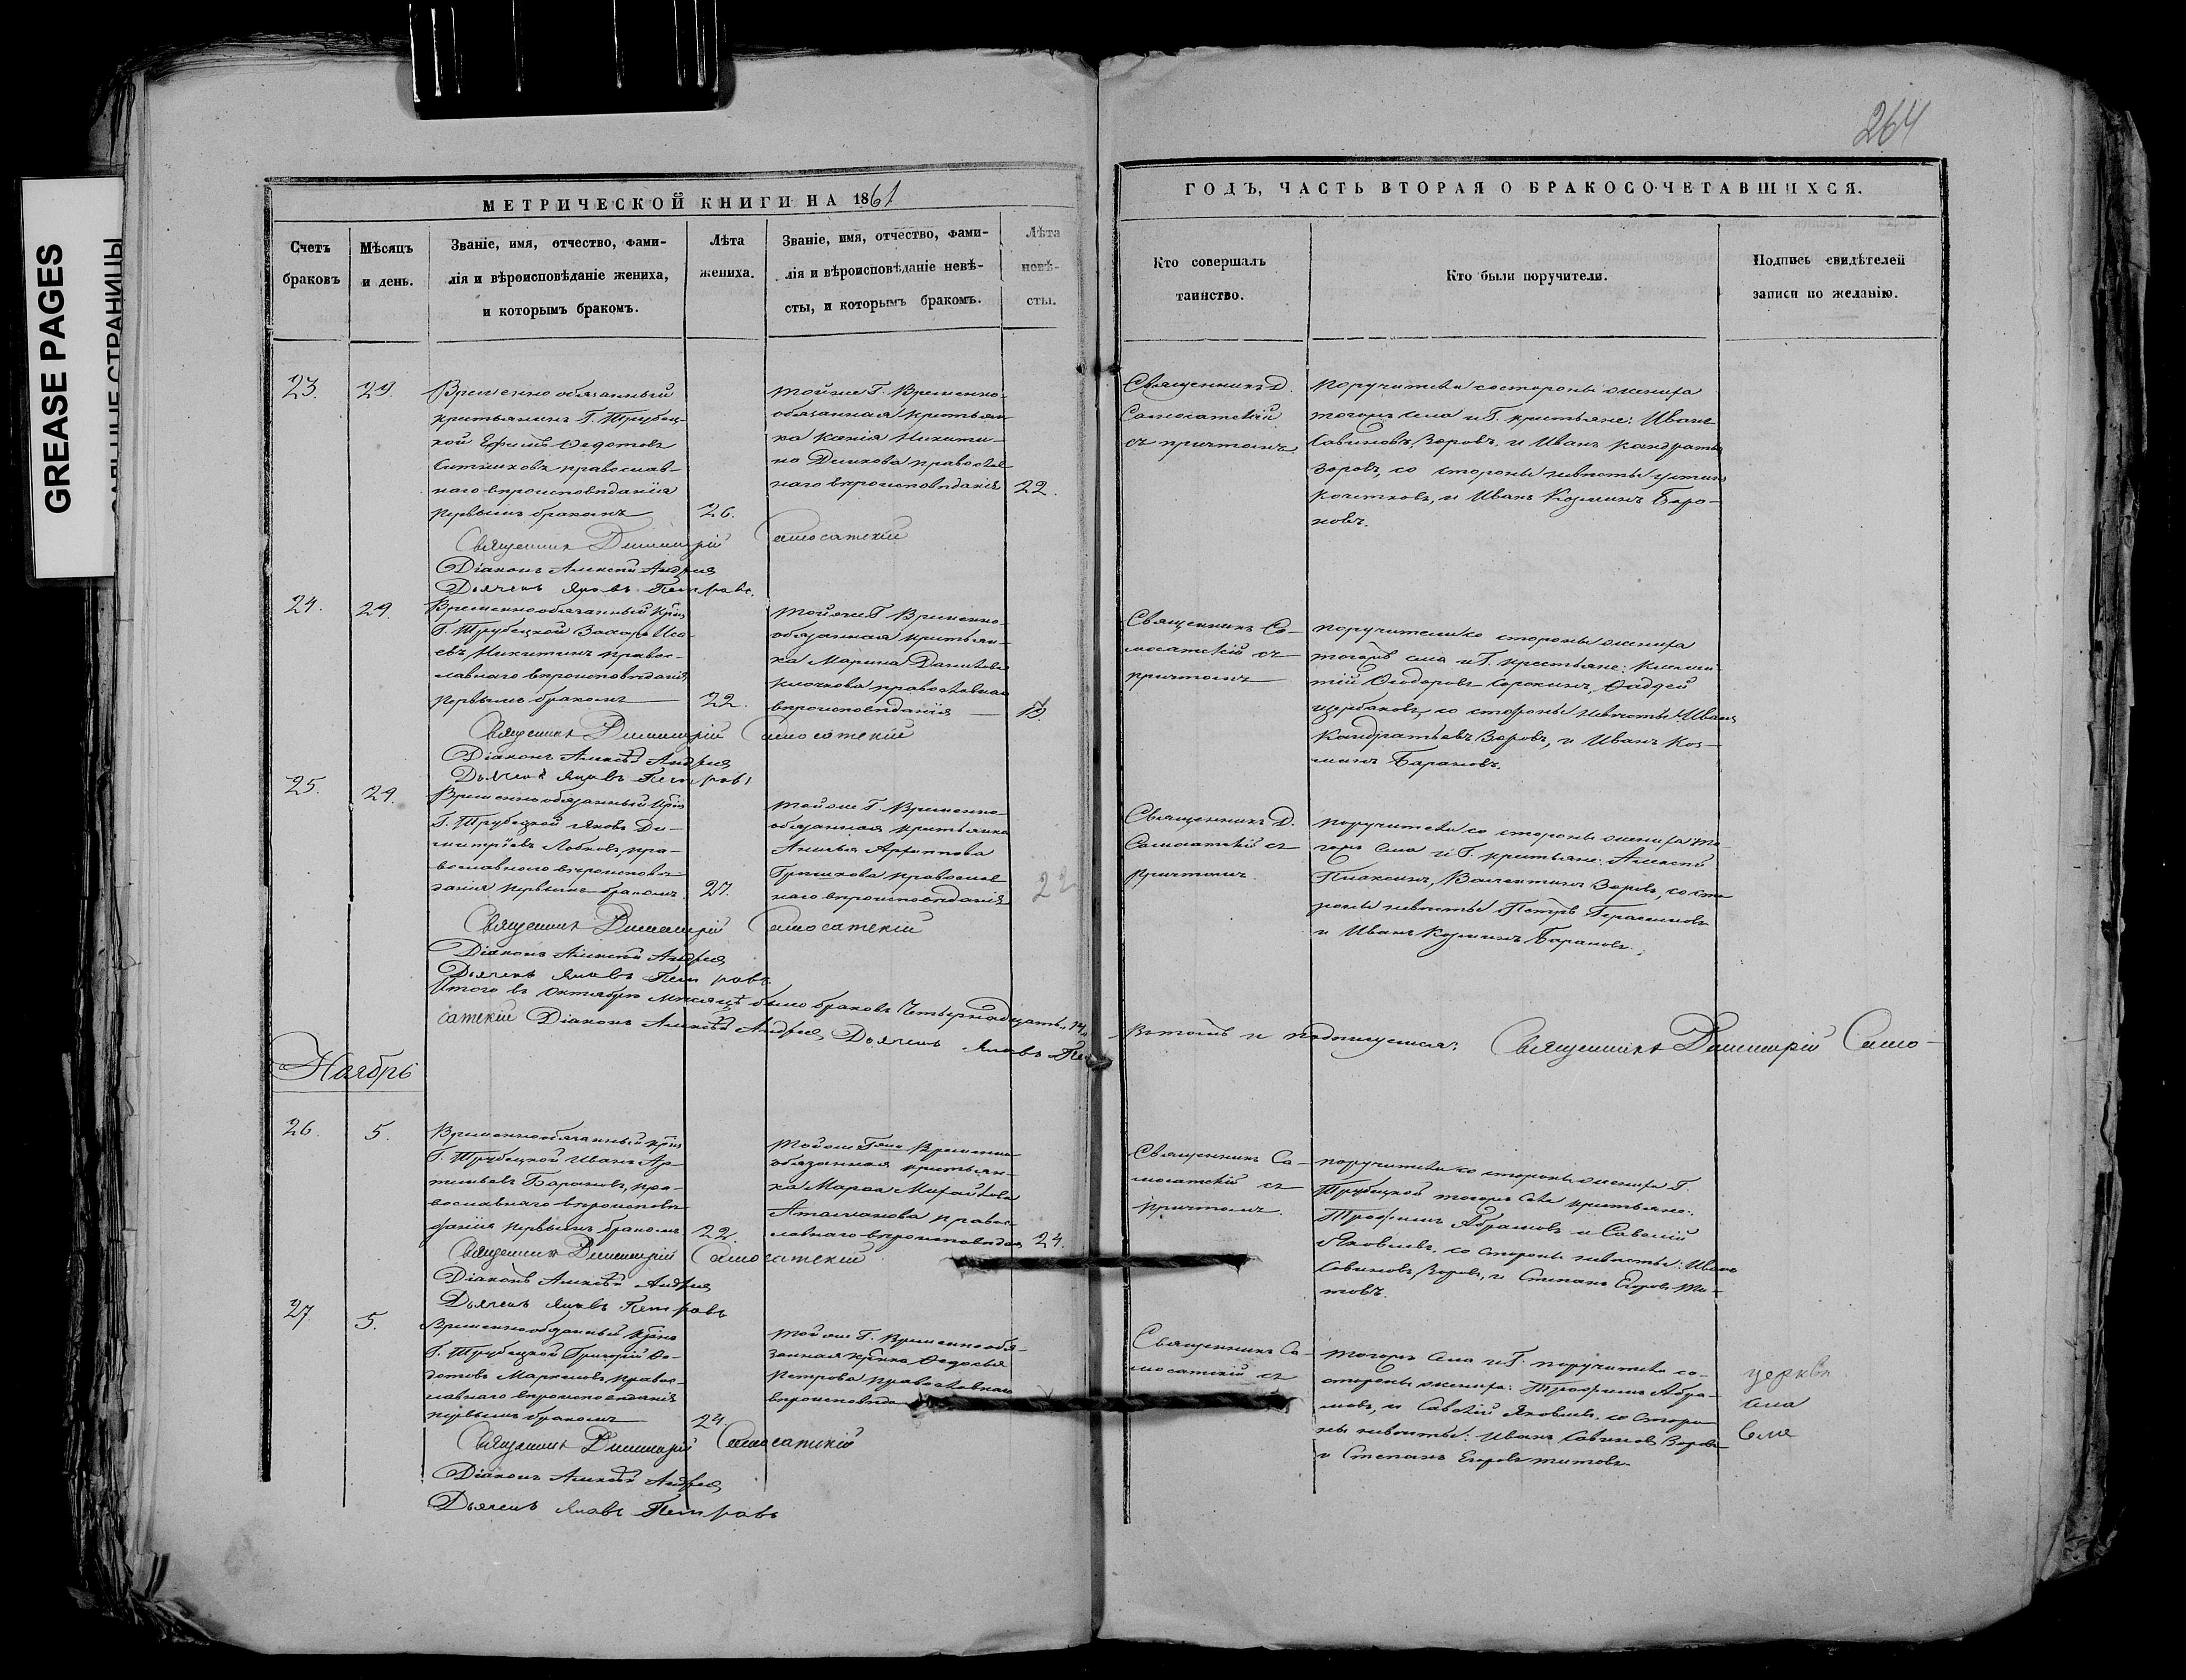 264
GREASE PAGES
МЕТРИЧЕСКОЙ КНИГИ НА 1861
Счетъ браковъ
Мѣсяцъ и день.
Званіе, имя, отчество, фами-
лія и вѣроисповѣданіе жениха,
и которымъ бракомъ.
Лѣта жениха.
Званіе, имя, отчество, фами-
лія и вѣроисповѣданіе невѣ-
сты, и которымъ бракомъ.
Лѣта невѣ-
сты.
ГОДЪ, ЧАСТЬ ВТОРАЯ О БРАКОСОЧЕТАВШИХСЯ.
Кто совершалъ
таинство.
Кто были поручители.
Подпись свидѣтелей
записи по желанію.
23.
29.
Временно обязанный
крестьянинъ Г. Трубец-
кой Ефимъ Ѳедотовъ
Ситниковъ православ-
наго вѣроисповѣданія
первымъ бракомъ
26.
Тойже Г. Временно-
обязанная крестьян
ка Ксенія Никити-
на православ
наго вѣроисповѣданія
22.
Священникъ Д.
Самосатскій
съ причтомъ
Поручители со стороны жениха
тогожъ села и Г. крестьяне: Иванъ
Савиновъ Зоровъ, и Иванъ Кандратьев
Зоровъ, со стороны невесты Устинъ
Кочетковъ, и Иванъ Козминъ Бара-
новъ.
Священникъ Димитрій Самосатскій
Діаконъ Алексѣй Андреев
Дьячекъ Яковъ Петровъ.
24.
29.
Временнообязанный крес
Г. Трубецкой Захаръ Иса-
евъ Никитинъ правос-
лавнаго вѣроисповѣданія
первымъ бракомъ
22.
Тойже Г. Временно-
обязанная крестьян-
ка Марина Данилова
Клочкова православнаго
вѣроисповѣданія
Священникъ Са-
мосатскій съ
причтомъ
Поручители со стороны жениха
тогожъ села и Г. крестьяне: Клемен-
тій Ѳеодоровъ Сорокинъ, Ѳаддей
Щербаковъ, со стороны невесты Иванъ
Кандратьевъ Зоровъ, и Иванъ Коз-
минъ Барановъ.
Священникъ Димитрій Самосатскій
Діаконъ Алексѣй Андреев
Дьячекъ Яковъ Петровъ
25.
29.
Временнообязанный крес
Г. Трубецкой Яковъ Ди-
митріевъ Лобковъ, пра-
вославнаго вѣроисповѣ
данія первымъ бракомъ
27.
Тойже Г. Временно-
обязанная крестьянка
Анисья Архиппова
Гришкова православ
наго вѣроисповѣданія
22
Священникъ Д.
Самосатскій съ
причтомъ.
Поручители со стороны жениха то-
гожъ села и Г. крестьяне: Алексѣй
Плаксинъ, Валентинъ Зоровъ, со сто
роны невесты Петръ Герасимовъ
и Иванъ Козминъ Барановъ.
Священникъ Димитрій Самосатскій
Діаконъ Алексѣй Андреев
Дьячекъ Яковъ Петровъ
Итого въ Октябрѣ мѣсяцѣ было браковъ четырнадцать
Въ томъ и подпишемся: Священникъ Димитрій Само-
сатскій Діаконъ Алексѣй Андреев Дьячекъ Яковъ
Ноябрь
26.
5.
Временнообязанный крес
Г. Трубецкой Иванъ Ар-
темьевъ Барановъ, пра-
вославнаго вѣроисповѣ
данія первымъ бракомъ
22.
Тойже Временно
обязанная крестьян-
ка Марѳа Михайлова
Атаманова правос
лавнаго вѣроисповѣдан
24.
Священникъ Са-
мосатскій съ
причтомъ.
Поручители со стороны жениха Г.
Трубецкой тогожъ села крестьяне:
Трофимъ Абрамовъ и Савелій
Яковлевъ, со стороны невесты: Иванъ
Савиновъ Зоровъ, и Степанъ Егоровъ Ти-
товъ.
Священникъ Димитрій Самосатскій
Діаконъ Алексѣй Андреев
Дьячекъ Яковъ Петровъ
27.
5.
Временнообязанный
Г. Трубецкой Григорій Ѳе-
дотовъ Маркеловъ правос-
лавнаго вѣроисповѣданія
первымъ бракомъ
24.
Тойже Г. Временнообя-
занная Ѳедосья
Петрова православнаго
вѣроисповѣда
Священникъ Са-
мосатскій съ
Тогожъ села и Г. поручители со
стороны жениха: Трофимъ Абра-
мовъ, и Савелій Яковлевъ, со сторо
ны невесты: Иванъ Савиновъ Зоровъ
и Степанъ Егоровъ Титовъ.
церкви
села
Священникъ Димитрій Самосатскій
Діаконъ Алексѣй Андреев
Дьячекъ Яковъ Петровъ